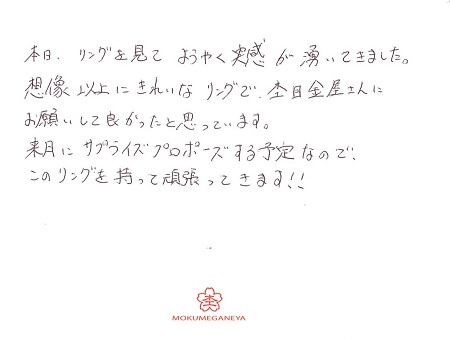 本日、リングを見て ようやく実感が湧いてきました。
想像以上にきれいなリングで、杢目金屋さんに
お願いして良かったと思っています。
来月にサプライズプロポーズする予定なので、
このリングを持って頑張ってきます!!
杢
MOKUMEGANEYA